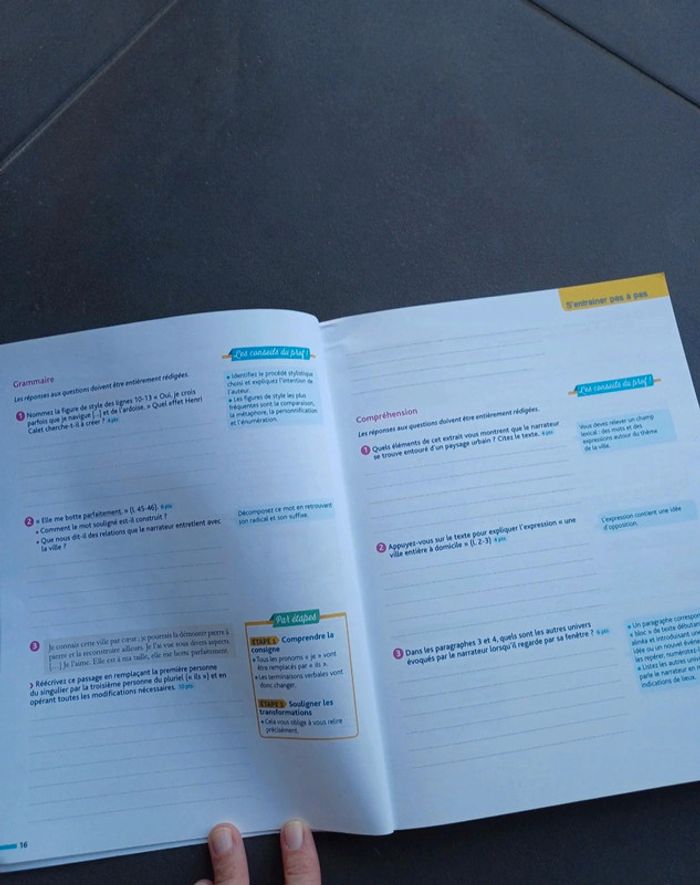 Les conseils du prof !
Grammaire
Les réponses aux questions doivent être entièrement rédigées.
1 Nommez la figure de style des lignes 10-13 « Oui, je crois
parfois que je navigue [...] et de l'ardoise. » Quel effet Henri
Calet cherche-t-il à créer ? 4 pts
• Identifiez le procédé stylistique
choisi et expliquez l'intention de
l'auteur.
• Les figures de style les plus
fréquentes sont la comparaison,
la métaphore, la personnification
et l'énumération.
2 « Elle me botte parfaitement. » (l. 45-46).
• Comment le mot souligné est-il construit ?
• Que nous dit-il des relations que le narrateur entretient avec
la ville ?
Décomposez ce mot en retrouvant
son radical et son suffixe.
3 Je connais cette ville par cœur ; je pourrais la démonter pierre à
pierre et la reconstruire ailleurs. Je l'ai vue sous divers aspects.
[...] Je l'aime. Elle est à ma taille, elle me botte parfaitement.
› Réécrivez ce passage en remplaçant la première personne
du singulier par la troisième personne du pluriel (« ils ») et en
opérant toutes les modifications nécessaires. 10 pts
Par étapes
ÉTAPE 1 Comprendre la
consigne
• Tous les pronoms « je » vont
être remplacés par « ils ».
• Les terminaisons verbales vont
donc changer.
ÉTAPE 2 Souligner les
transformations
• Cela vous oblige à vous relire
précisément.
16
S'entraîner pas à pas
Les conseils du prof !
Compréhension
Les réponses aux questions doivent être entièrement rédigées.
1 Quels éléments de cet extrait vous montrent que le narrateur
se trouve entouré d'un paysage urbain ? Citez le texte.
Vous devez relever un champ
lexical : des mots et des
expressions autour du thème
de la ville.
2 Appuyez-vous sur le texte pour expliquer l'expression « une
ville entière à domicile » (l. 2-3)
L'expression contient une idée
d'opposition.
3 Dans les paragraphes 3 et 4, quels sont les autres univers
évoqués par le narrateur lorsqu'il regarde par sa fenêtre ?
• Un paragraphe correspon
« bloc » de texte débutan
alinéa et introduisant une
idée ou un nouvel élémen
les repérer, numérotez-l
• Listez les autres univ
parle le narrateur en r
indications de lieux.